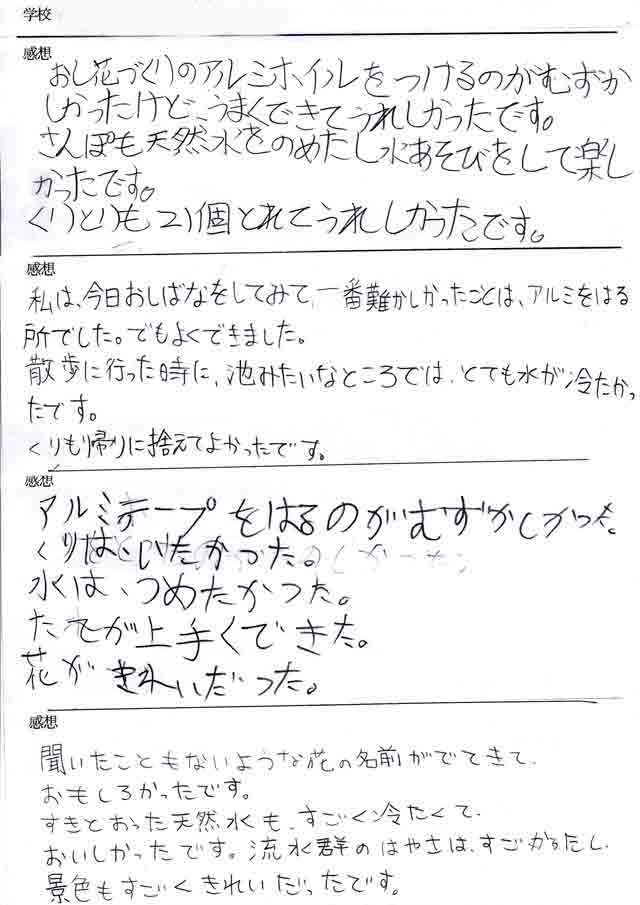 学校
感想
おし花づくりのアルミホイルをつけるのがむずか
しかったけど、うまくできてうれしかったです。
さんぽも天然水をのめたし水あそびをして楽し
かったです。
くりとりも21個とれてうれしかったです。
感想
私は、今日おしばなをしてみて、一番難かしかったことは、アルミをはる
所でした。でもよくできました。
散歩に行った時に、池みたいなところでは、とても水が冷たかっ
たです。
くりも帰りに捨えてよかったです。
感想
アルミテープをはるのがむずかしかった。
くりは、いたかった。
水は、つめたかった。
たてが上手くできた。
花がきれいだった。
感想
聞いたこともないような花の名前がでてきて、
おもしろかったです。
すきとおった天然水も、すごく冷たくて、
おいしかったです。流水群のはやさは、すごかったし、
景色もすごくきれいだったです。